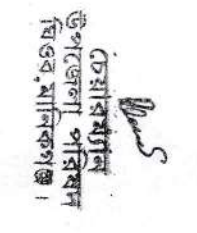 চেয়ারম্যান
উপজেলা পরিষদ
ঘিওর, মানিকগঞ্জ।